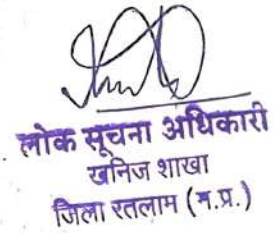 लोक सूचना अधिकारी
खनिज शाखा
जिला रतलाम (म.प्र.)